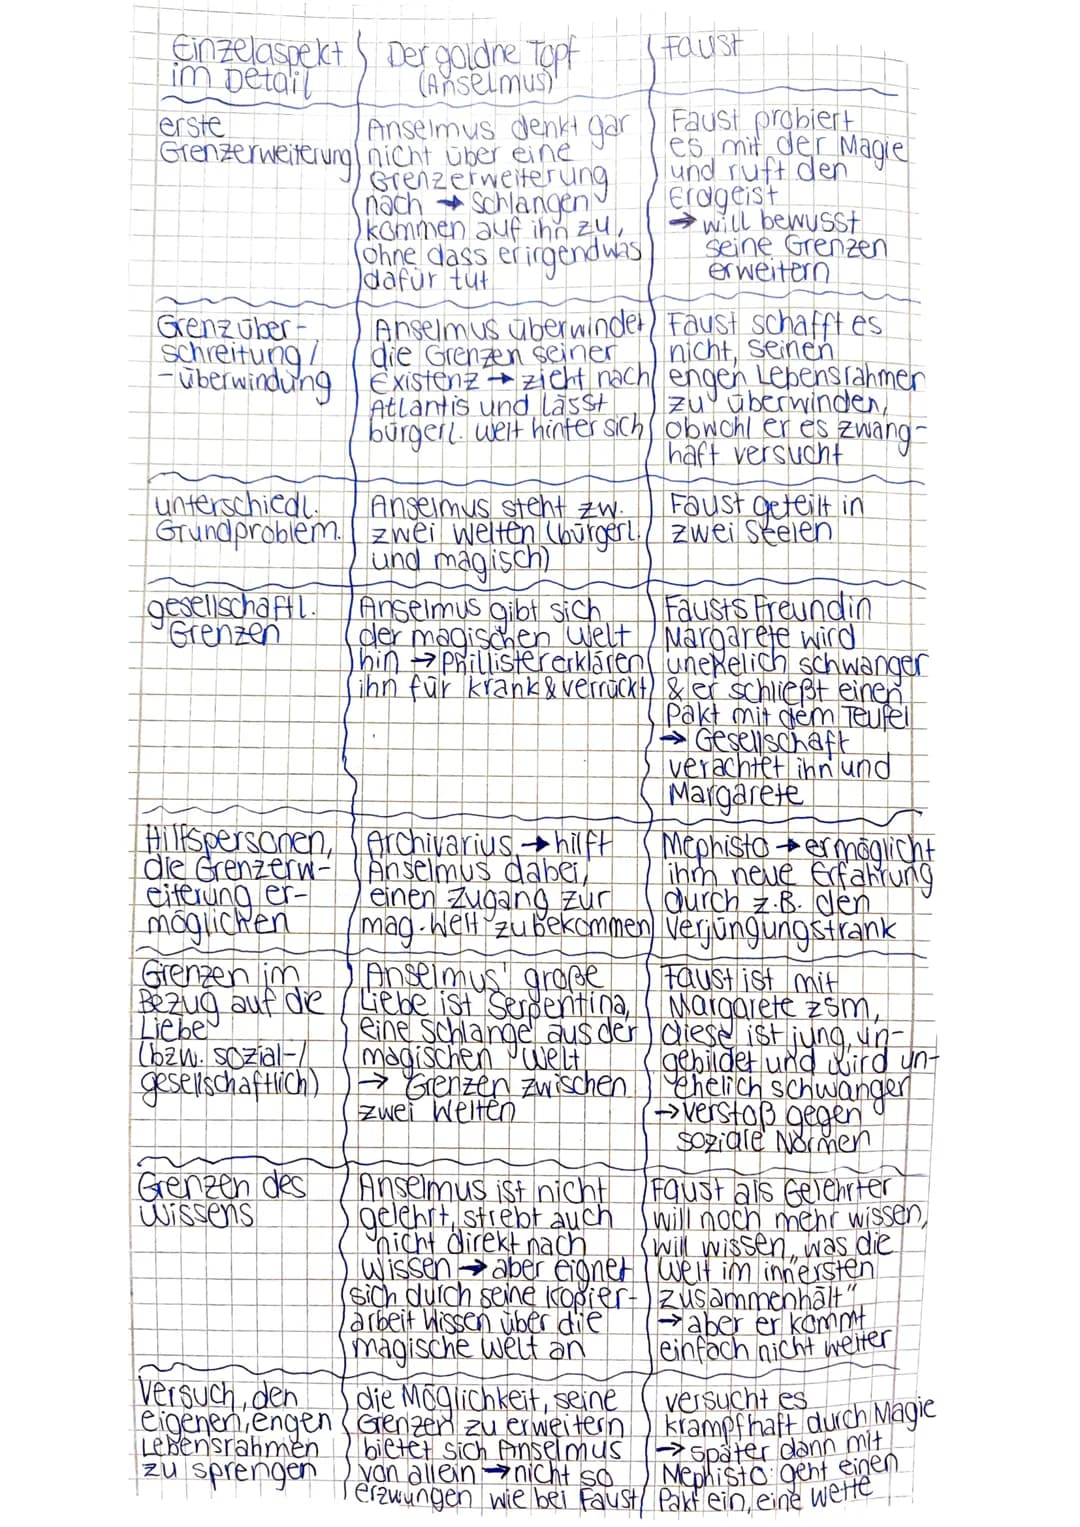 Einzelaspekt im Detail
Der goldne Topf (Anselmus)
Faust
erste
Grenzerweiterung
Anselmus denkt gar
nicht über eine
Grenzerweiterung
nach → Schlangen
kommen auf ihn zu,
ohne dass er irgendwas
dafür tut
Faust probiert
es mit der Magie
und ruft den
Erdgeist
→ will bewusst
seine Grenzen
erweitern
Grenzüber-
schreitung /
-überwindung
Anselmus überwindet
die Grenzen seiner
Existenz → zieht nach
Atlantis und lässt
bürgerl. Welt hinter sich
Faust schafft es
nicht, seinen
engen Lebensrahmen
zu überwinden,
obwohl er es zwang-
haft versucht
unterschiedl.
Grundproblem.
Anselmus steht zw.
zwei Welten (bürgerl.
und magisch)
Faust geteilt in
zwei Seelen
gesellschaftl.
Grenzen
Anselmus gibt sich
der magischen Welt
hin → Phillister erklären
ihn für krank & verrückt
Fausts Freundin
Margarete wird
unehelich schwanger
& er schließt einen
Pakt mit dem Teufel
→ Gesellschaft
verachtet ihn und
Margarete
Hilfspersonen,
die Grenzerw-
eiterung er-
möglichen
Archivarius → hilft
Anselmus dabei,
einen Zugang zur
mag. Welt zu bekommen
Mephisto → ermöglicht
ihm neue Erfahrung
durch z.B. den
Verjüngungstrank
Grenzen im
Bezug auf die
Liebe
(bzw. sozial-/
gesellschaftlich)
Anselmus' große
Liebe ist Serpentina,
eine Schlange aus der
magischen Welt
→ Grenzen zwischen
zwei Welten
Faust ist mit
Margarete zsm,
diese ist jung, un-
gebildet und wird un-
ehelich schwanger
→ Verstoß gegen
soziale Normen
Grenzen des
Wissens
Anselmus ist nicht
gelehrt, strebt auch
nicht direkt nach
Wissen → aber eignet
sich durch seine Kopier-
arbeit Wissen über die
magische Welt an
Faust als Gelehrter
will noch mehr wissen,
will wissen „was die
Welt im innersten
zusammenhält"
→ aber er kommt
einfach nicht weiter
Versuch, den
eigenen, engen
Lebensrahmen
zu sprengen
die Möglichkeit, seine
Grenzen zu erweitern
bietet sich Anselmus
von allein → nicht so
erzwungen wie bei Faust
versucht es
krampfhaft durch Magie
→ später dann mit
Mephisto: geht einen
Pakt ein, eine Wette